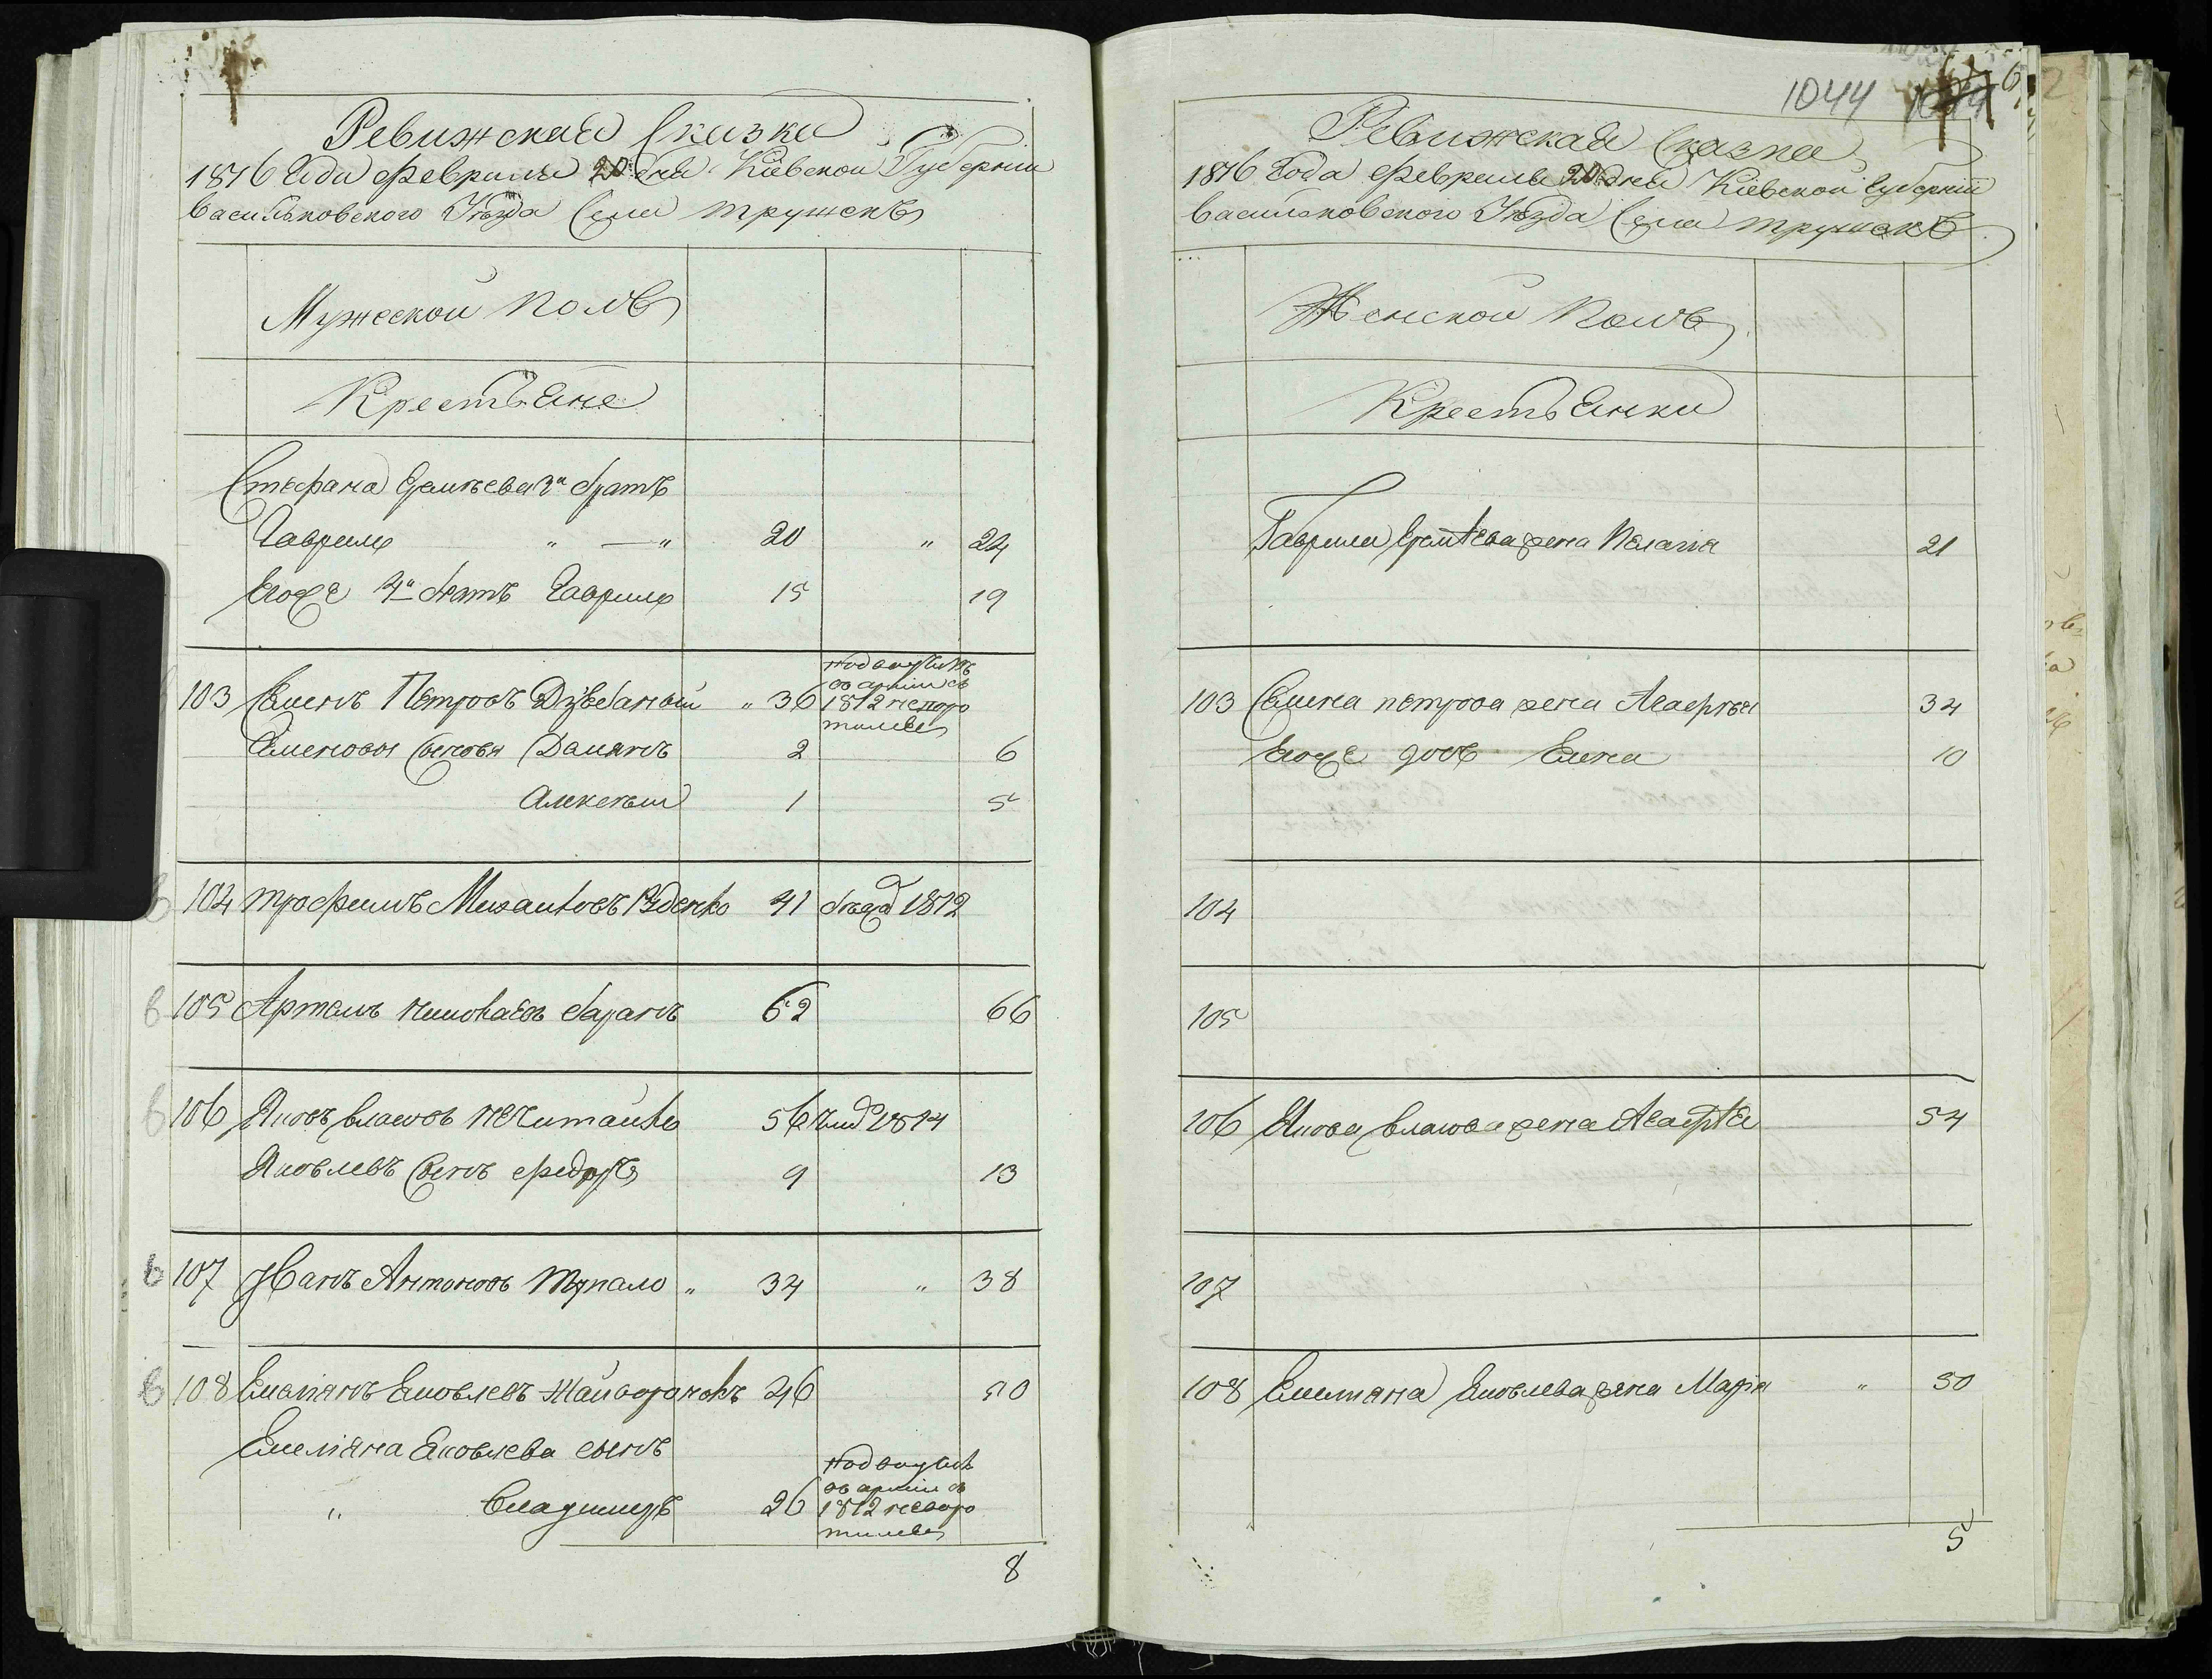 Ревижская Сказка
1816 Года Февраля 20 дня Кіевской Губерніи
Васильковского Уезда Села Трушекъ
Мужеской Полъ
Крестьяне
Стефана 3й братъ
Гаврило " — " 20 " 24
Егоже 4й братъ Гаврило 15 19
103 Семенъ Петровъ " 36
1812 неворо
тился
Семеновы Сыновья Дамянъ 2 6
Алексей 1 5
104 Трофимъ Руденко 41 1812
105 Артемъ Баранъ 62 66
106 Яковъ Власовъ Нечитайло 56 1814
Яковлевъ Сынъ Федоръ 9 13
107 Иванъ Антоновъ Тупало " 34 " 38
108 Емелианъ Яковлевъ 46 50
Емелиана Яковлева сынъ
" Владимиръ 26
под
въ арміи въ
1812 неворо
тился
8
1044
Ревижская Сказка
1816 Года Февраля 20 дня Кіевской Губерніи
Васильковского Уезда Села Трушекъ
Женской Полъ
Крестьянки
Гаврила жена Пелагія 21
103 Семена Петрова жена Агафія 34
Егоже дочь Елена 10
104
105
106 Якова Власова жена Агафія 54
107
108 Емелиана Яковлева жена Марія " 50
5